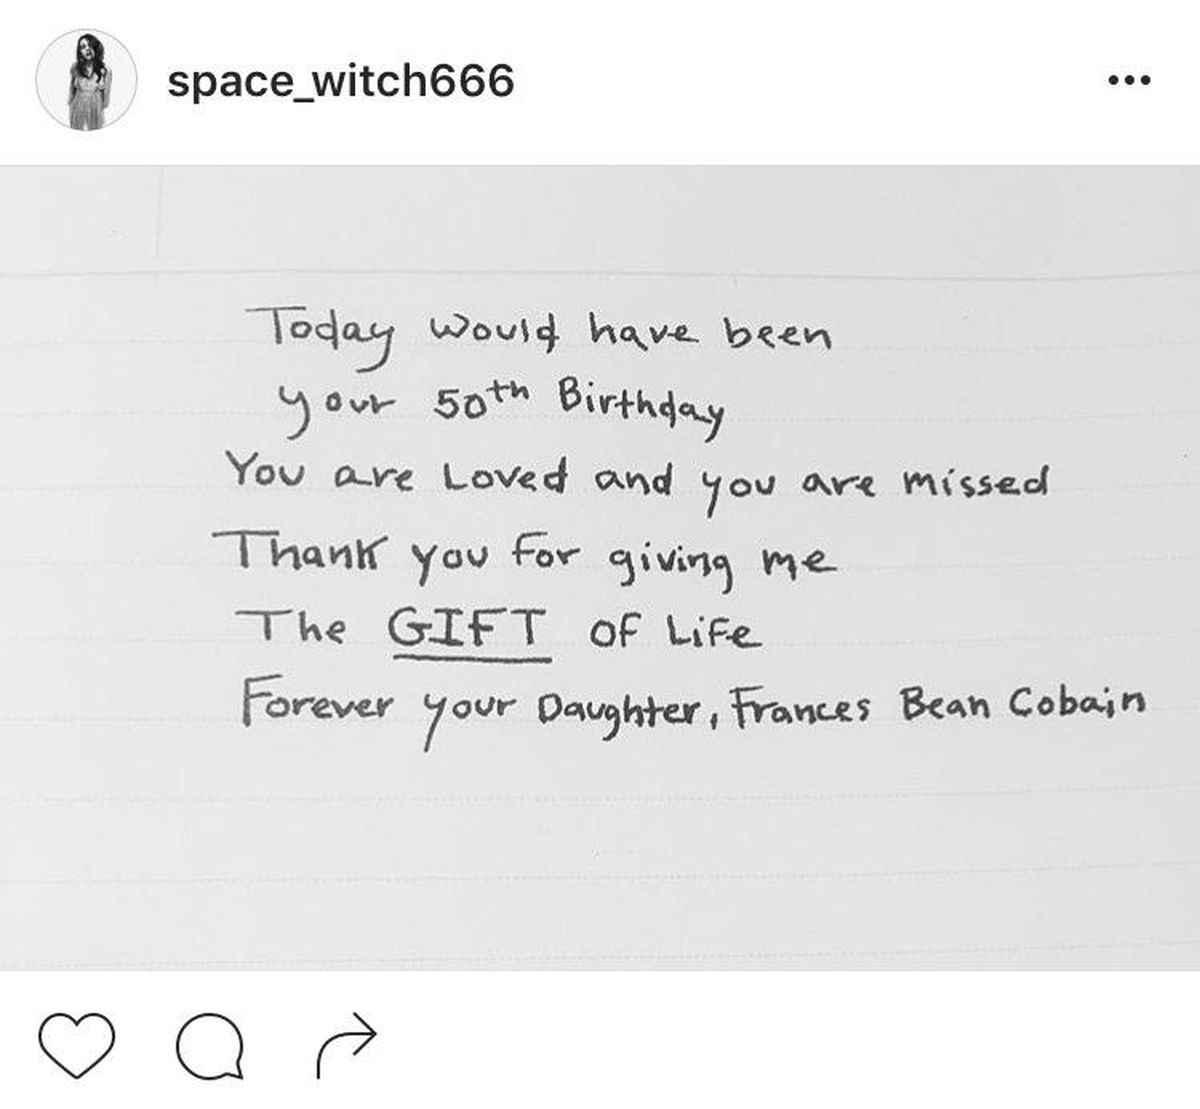 space_witch666
Today would have been
your 50th Birthday
You are Loved and you are missed
Thank you for giving me
The GIFT of Life
Forever your Daughter, Frances Bean Cobain